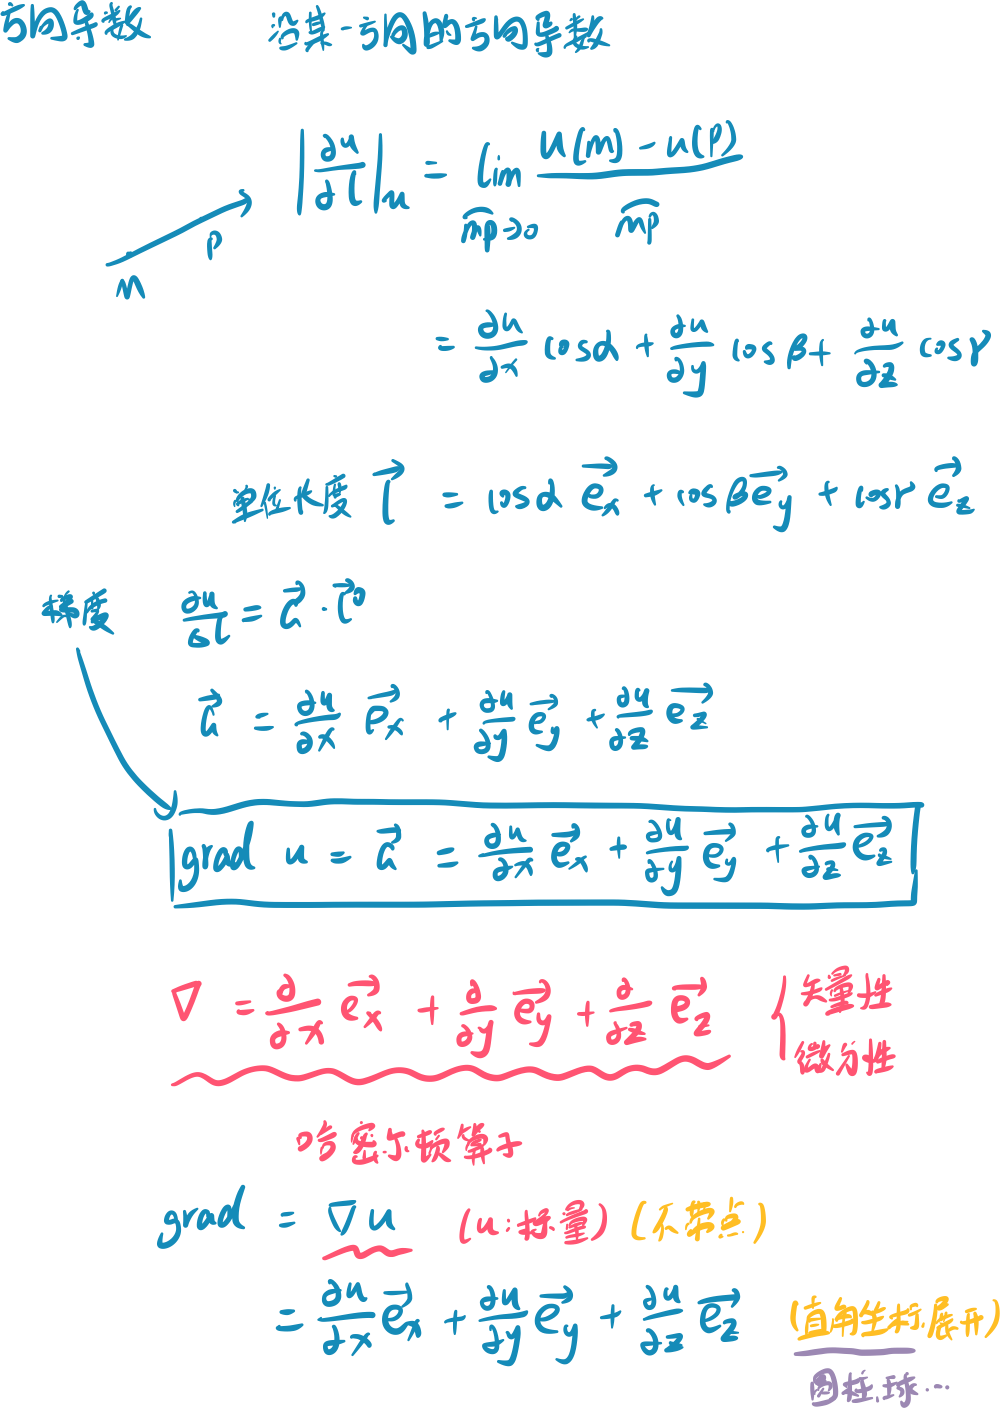 方向导数 沿某一方向的方向导数
|∂u/∂l|_M = lim_{m͡p→0} (u(m) - u(p)) / m͡p
p
m
= ∂u/∂x cosα + ∂u/∂y cosβ + ∂u/∂z cosγ
单位长度 l⃗ = cosα e⃗_x + cosβ e⃗_y + cosγ e⃗_z
梯度 ∂u/∂l = G⃗ · l⃗⁰
G⃗ = ∂u/∂x e⃗_x + ∂u/∂y e⃗_y + ∂u/∂z e⃗_z
grad u = G⃗ = ∂u/∂x e⃗_x + ∂u/∂y e⃗_y + ∂u/∂z e⃗_z
∇ = ∂/∂x e⃗_x + ∂/∂y e⃗_y + ∂/∂z e⃗_z { 矢量性
微分性
哈密尔顿算子
grad = ∇u (u:标量) (不带点)
= ∂u/∂x e⃗_x + ∂u/∂y e⃗_y + ∂u/∂z e⃗_z (直角坐标展开)
圆柱.球...